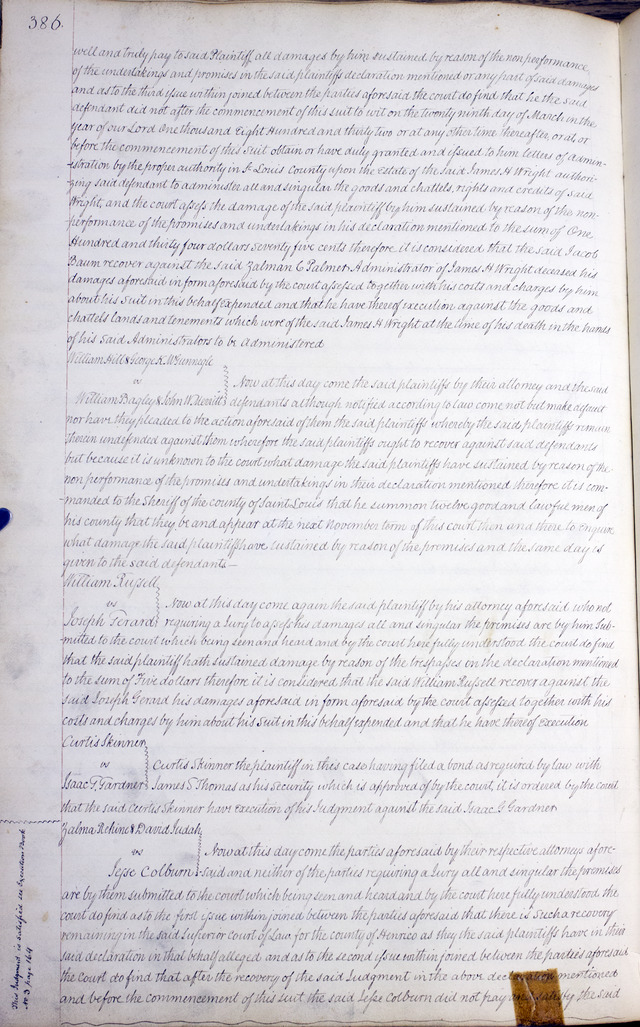 386.
well and truly pay to said Plaintiff all damages by him sustained by reason of the non performance
of the undertakings and promises in the said plaintiffs declaration mentioned or any part of said damages
and as to the third issue within joined between the parties aforesaid the court do find that he the said
defendant did not after the commencement of this suit to wit on the twenty ninth day of March in the
year of our Lord One thousand Eight Hundred and thirty two or at any other time thereafter, or at, or
before the commencement of this Suit obtain or have duly granted and issued to him letters of admin-
-istration by the proper authority in St Louis County upon the estate of the said James H Wright authori-
-zing said defendant to administer all and singular the goods and chattels, rights and credits of said
Wright, and the court assess the damage of the said plaintiff by him sustained by reason of the non-
performance of the promises and undertakings in his declaration mentioned to the sum of One
Hundred and thirty four dollars seventy five cents therefore it is considered that the said Jacob
Baum recover against the said Zalman C Palmer Administrator of James H Wright deceased his
damages aforesaid in form aforesaid by the court assessed together with his costs and charges by him
about his Suit in this behalf expended and that he have thereof execution against the goods and
chattels lands and tenements which were of the said James H Wright at the time of his death in the hands
of his said Administrators to be administered
William Hill & George K. McGunnegle
vs
Now at this day come the said plaintiffs by their attorney and the said
William Bagley & John W. Merritt defendants although notified according to law come not but make default
nor have they pleaded to the action aforesaid of them the said plaintiffs whereby the said plaintiff remain
therein undefended against them wherefore the said plaintiffs ought to recover against said defendants
but because it is unknown to the court what damage the said plaintiffs have sustained by reason of the
non performance of the promises and undertakings in their declaration mentioned therefore it is com-
-manded to the Sheriff of the county of Saint Louis that he summon twelve good and lawful men of
his county that they be and appear at the next November term of this court then and there to enquire
what damage the said plaintiffs have sustained by reason of the premises and the same day is
given to the said defendants—
William Russell
vs
Now at this day come again the said plaintiff by his attorney aforesaid who not
Joseph Gerard requiring a Jury to assess his damages all and singular the premises are by him Sub-
mitted to the court which being seen and heard and by the court here fully understood the court do find
that the said plaintiff hath sustained damage by reason of the trespasses in the declaration mentioned
to the sum of Five dollars therefore it is considered that the said William Russell recover against the
said Joseph Gerard his damages aforesaid in form aforesaid by the court assessed together with his
costs and charges by him about his Suit in this behalf expended and that he have thereof execution
Curtis Skinner
vs
Curtis Skinner the plaintiff in this case having filed a bond as required by law with
Isaac G. Gardner James S Thomas as his Security which is approved of by the court, it is ordered by the court
that the said Curtis Skinner have execution of his Judgment against the said Isaac G Gardner
Zalma Rehine & David Judah
vs
Now at this day come the parties aforesaid by their respective attorneys afore-
Jesse Colburn said and neither of the parties requiring a Jury all and singular the premises
are by them submitted to the court which being seen and heard and by the court here fully understood the
court do find as to the first issue within joined between the parties aforesaid that there is Such a recovery
remaining in the said Superior Court of Law for the county of Henrico as they the said plaintiffs have in their
said declaration in that behalf alleged and as to the second issue within joined between the parties aforesaid
the Court do find that after the recovery of the said Judgment in the above declaration mentioned
and before the commencement of this suit the said Jesse Colburn did not pay and satisfy the said
This Judgment is satisfied see Execution Book
No. 3 page 164